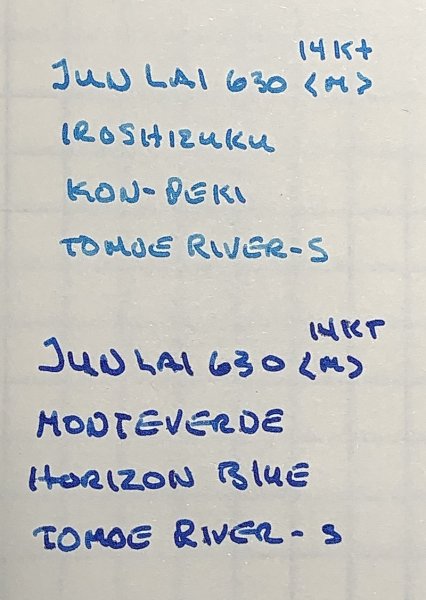 14Kt
JUN LAI 630 <M>
IROSHIZUKU
KON-PEKI
TOMOE RIVER-S
14KT
JUN LAI 630 <M>
MONTEVERDE
HORIZON BLUE
TOMOE RIVER-S